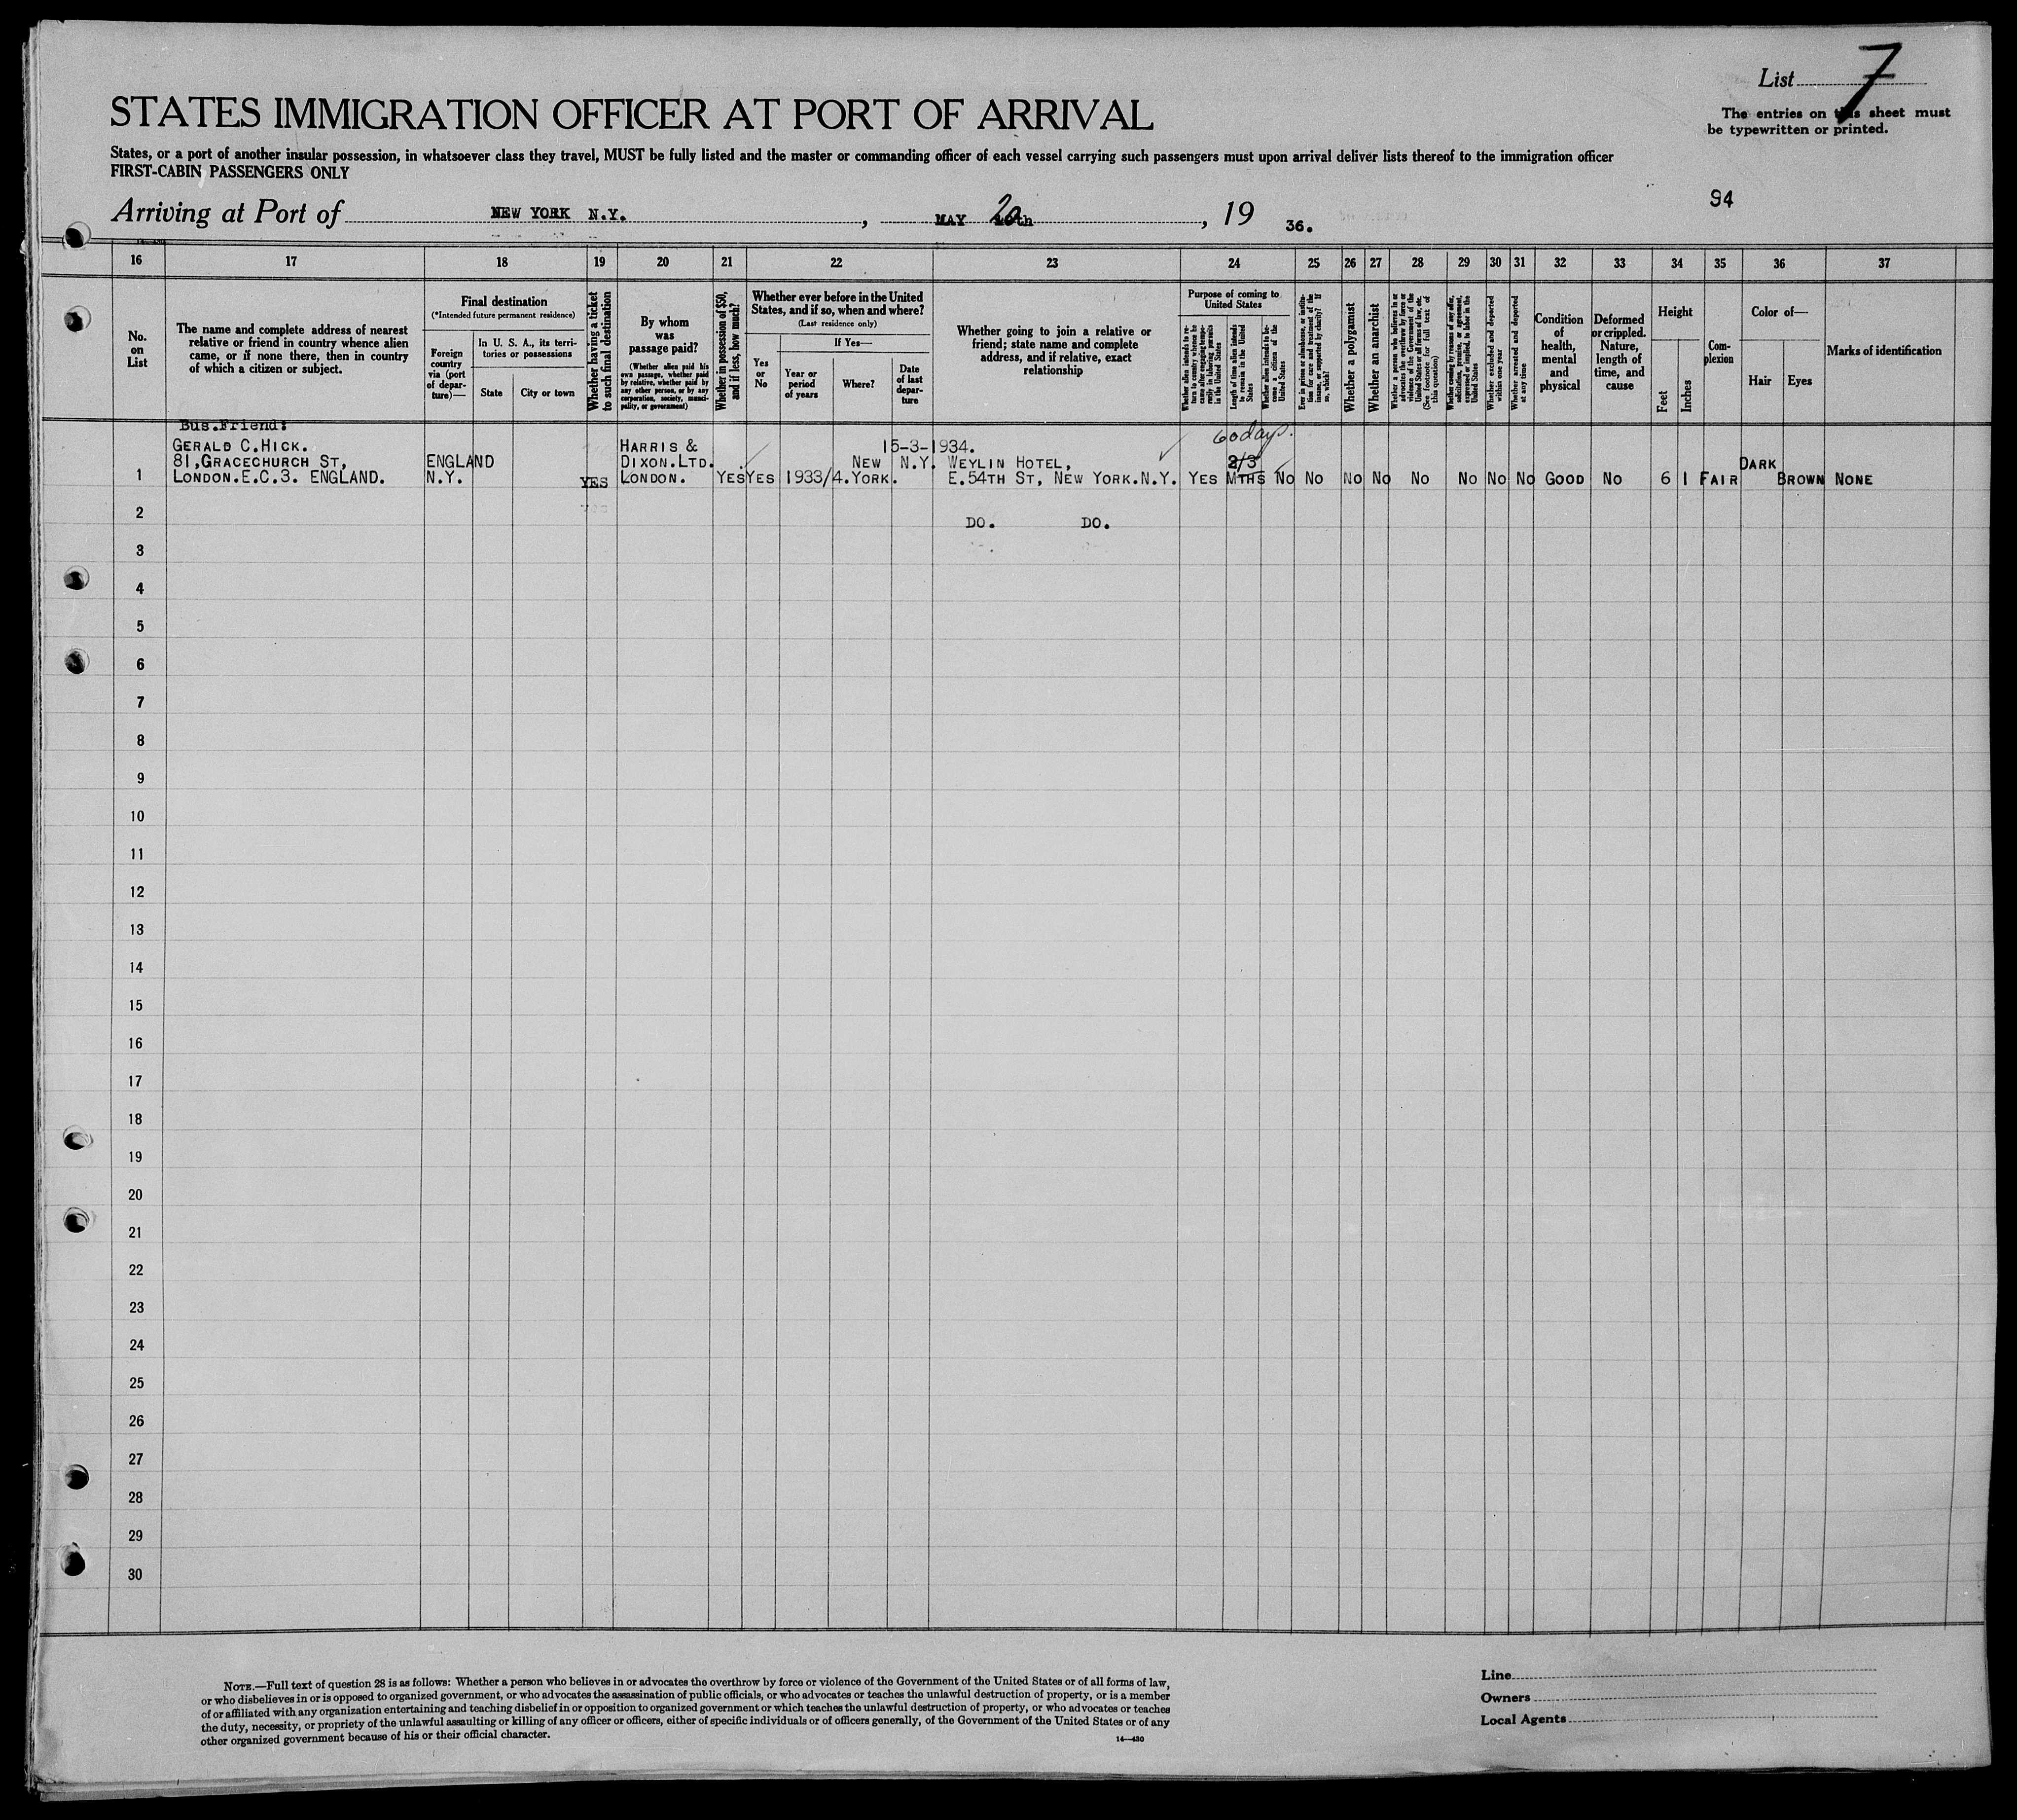 List 7
The entries on this sheet must
be typewritten or printed.
STATES IMMIGRATION OFFICER AT PORT OF ARRIVAL
States, or a port of another insular possession, in whatsoever class they travel, MUST be fully listed and the master or commanding officer of each vessel carrying such passengers must upon arrival deliver lists thereof to the immigration officer
FIRST-CABIN PASSENGERS ONLY
94
Arriving at Port of NEW YORK N.Y., MAY 20th, 19 36.
16 17 18 19 20 21 22 23 24 25 26 27 28 29 30 31 32 33 34 35 36 37
No.
on
List
The name and complete address of nearest
relative or friend in country whence alien
came, or if none there, then in country
of which a citizen or subject.
Final destination
(*Intended future permanent residence)
Foreign
country
via (port
of depar-
ture)—
In U. S. A., its terri-
tories or possessions
State
City or town
Whether having a ticket
to such final destination
By whom
was
passage paid?
(Whether alien paid his
own passage, whether paid
by relative, whether paid by
any other person, or by any
corporation, society, munici-
pality, or government)
Whether in possession of $50,
and if less, how much?
Whether ever before in the United
States, and if so, when and where?
(Last residence only)
Yes
or
No
If Yes—
Year or
period
of years
Where?
Date
of last
depar-
ture
Whether going to join a relative or
friend; state name and complete
address, and if relative, exact
relationship
Purpose of coming to
United States
Whether alien intends to re-
turn to country whence he
came after engaging tempo-
rarily in laboring pursuits
in the United States
Length of time alien intends
to remain in the United
States
Whether alien intends to be-
come a citizen of the
United States
Ever in prison or almshouse, or institu-
tion for care and treatment of the
insane, or supported by charity? If
so, which?
Whether a polygamist
Whether an anarchist
Whether a person who believes in or
advocates the overthrow by force or
violence of the Government of the
United States or all forms of law, etc.
(See footnote for full text of
this question)
Whether coming by reasons of any offer,
solicitation, promise, or agreement,
expressed or implied, to labor in the
United States
Whether excluded and deported
within one year
Whether arrested and deported
at any time
Condition
of
health,
mental
and
physical
Deformed
or crippled.
Nature,
length of
time, and
cause
Height
Feet
Inches
Com-
plexion
Color of—
Hair
Eyes
Marks of identification
Bus.Friend:
GERALD C.HICK.
81,GRACECHURCH ST,
LONDON.E.C.3. ENGLAND.
ENGLAND
N.Y.
YES
HARRIS &
DIXON.LTD.
LONDON.
YES YES 1933/4.
NEW N.Y.
YORK.
15-3-1934.
WEYLIN HOTEL,
E.54TH ST, NEW YORK.N.Y.
60 days.
YES 2/3
MTHS NO NO NO NO NO NO NO NO GOOD NO 6 1 FAIR DARK
BROWN NONE
DO. DO.
1
2
3
4
5
6
7
8
9
10
11
12
13
14
15
16
17
18
19
20
21
22
23
24
25
26
27
28
29
30
NOTE.—Full text of question 28 is as follows: Whether a person who believes in or advocates the overthrow by force or violence of the Government of the United States or of all forms of law,
or who disbelieves in or is opposed to organized government, or who advocates the assassination of public officials, or who advocates or teaches the unlawful destruction of property, or is a member
of or affiliated with any organization entertaining and teaching disbelief in or opposition to organized government or which teaches the unlawful destruction of property, or who advocates or teaches
the duty, necessity, or propriety of the unlawful assaulting or killing of any officer or officers, either of specific individuals or of officers generally, of the Government of the United States or of any
other organized government because of his or their official character.
14—430
Line
Owners
Local Agents